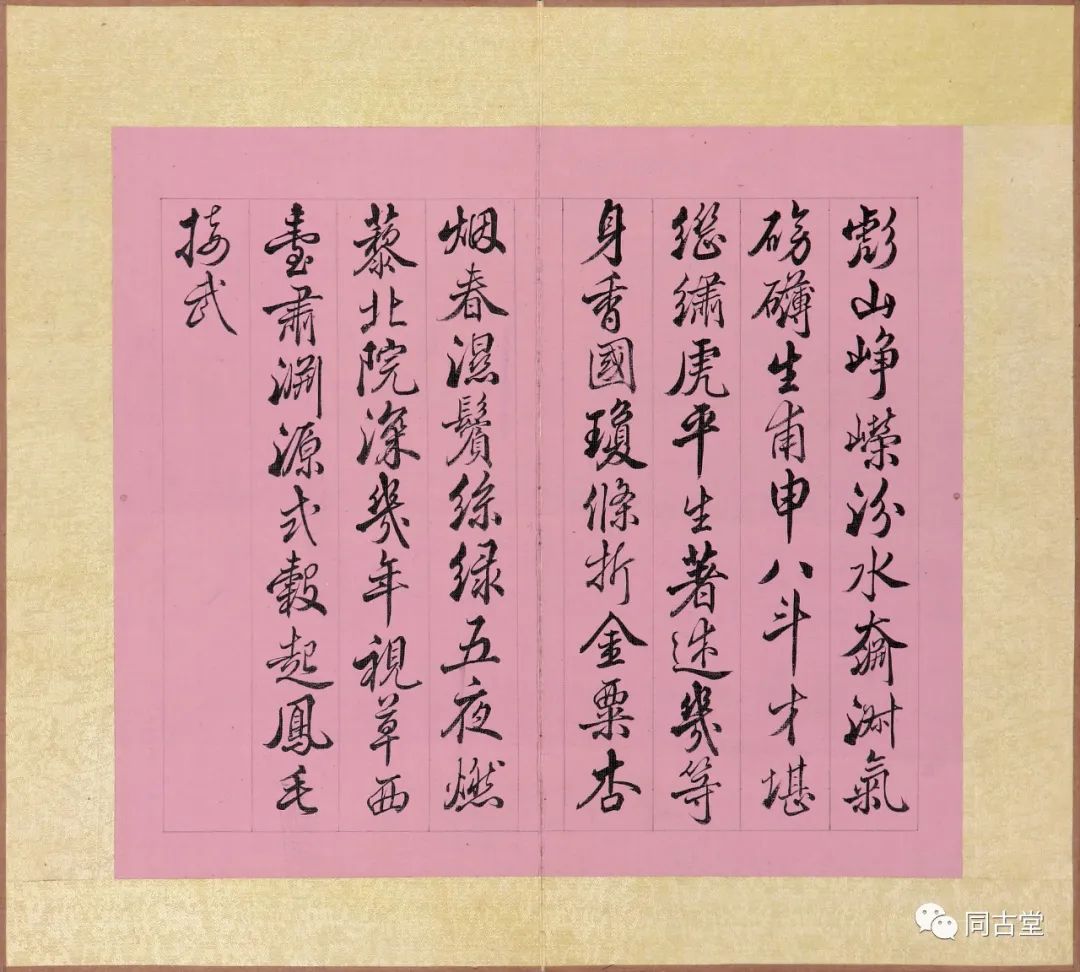 彪山崢嶸汾水奫淵氣
磅礴生甫申八斗才堪
繼繡虎平生著述幾等
身香國瓊條折金粟杏
烟春濕鬢絲緑五夜燃
藜北院深幾年視草西
臺肅淵源式穀起鳳毛
接武
同古堂